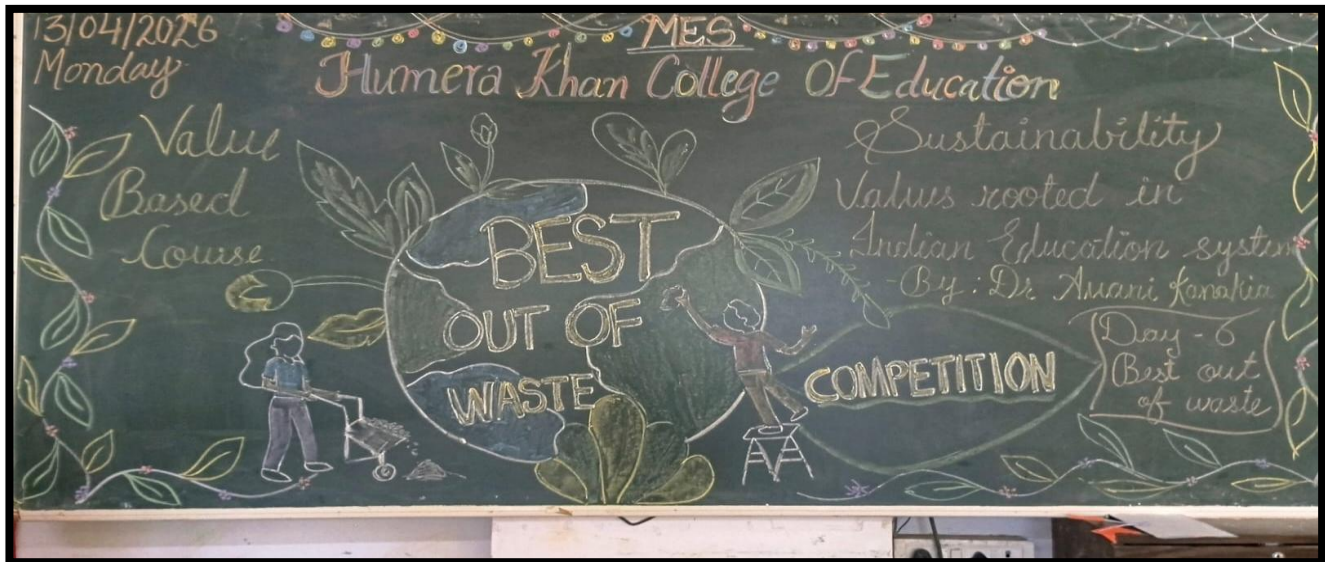 13/04/2026
Monday
MES
Humera Khan College Of Education
Value
Based
Course
Sustainability
Values rooted in
Indian Education system
- By: Dr Avani Kanakia
BEST
OUT OF
WASTE
COMPETITION
Day - 6
Best out
of waste